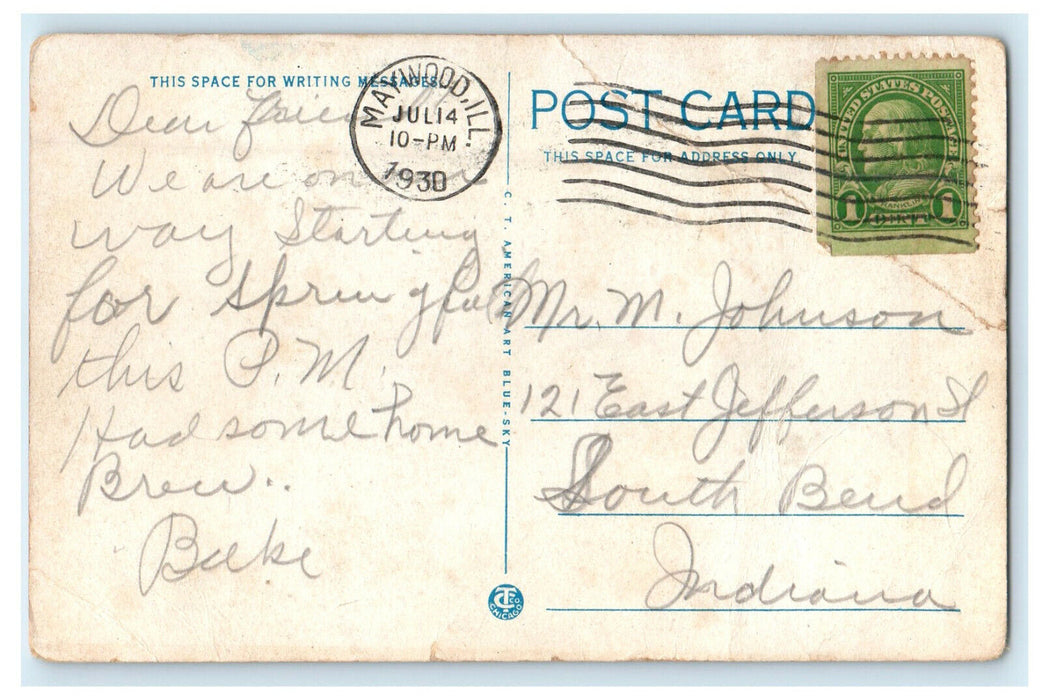 THIS SPACE FOR WRITING MESSAGES
Dear
We are on
way Starting
for Springfield
this P.M.
Had some home
Brew..
MAYWOOD, ILL.
JUL 14
10-PM
1930
C. T. AMERICAN ART BLUE-SKY
CT CO. CHICAGO
POST CARD
THIS SPACE FOR ADDRESS ONLY
UNITED STATES POSTAGE
FRANKLIN
1 CENT 1
Mr. M. Johnson
121 East Jefferson St
South Bend
Indiana